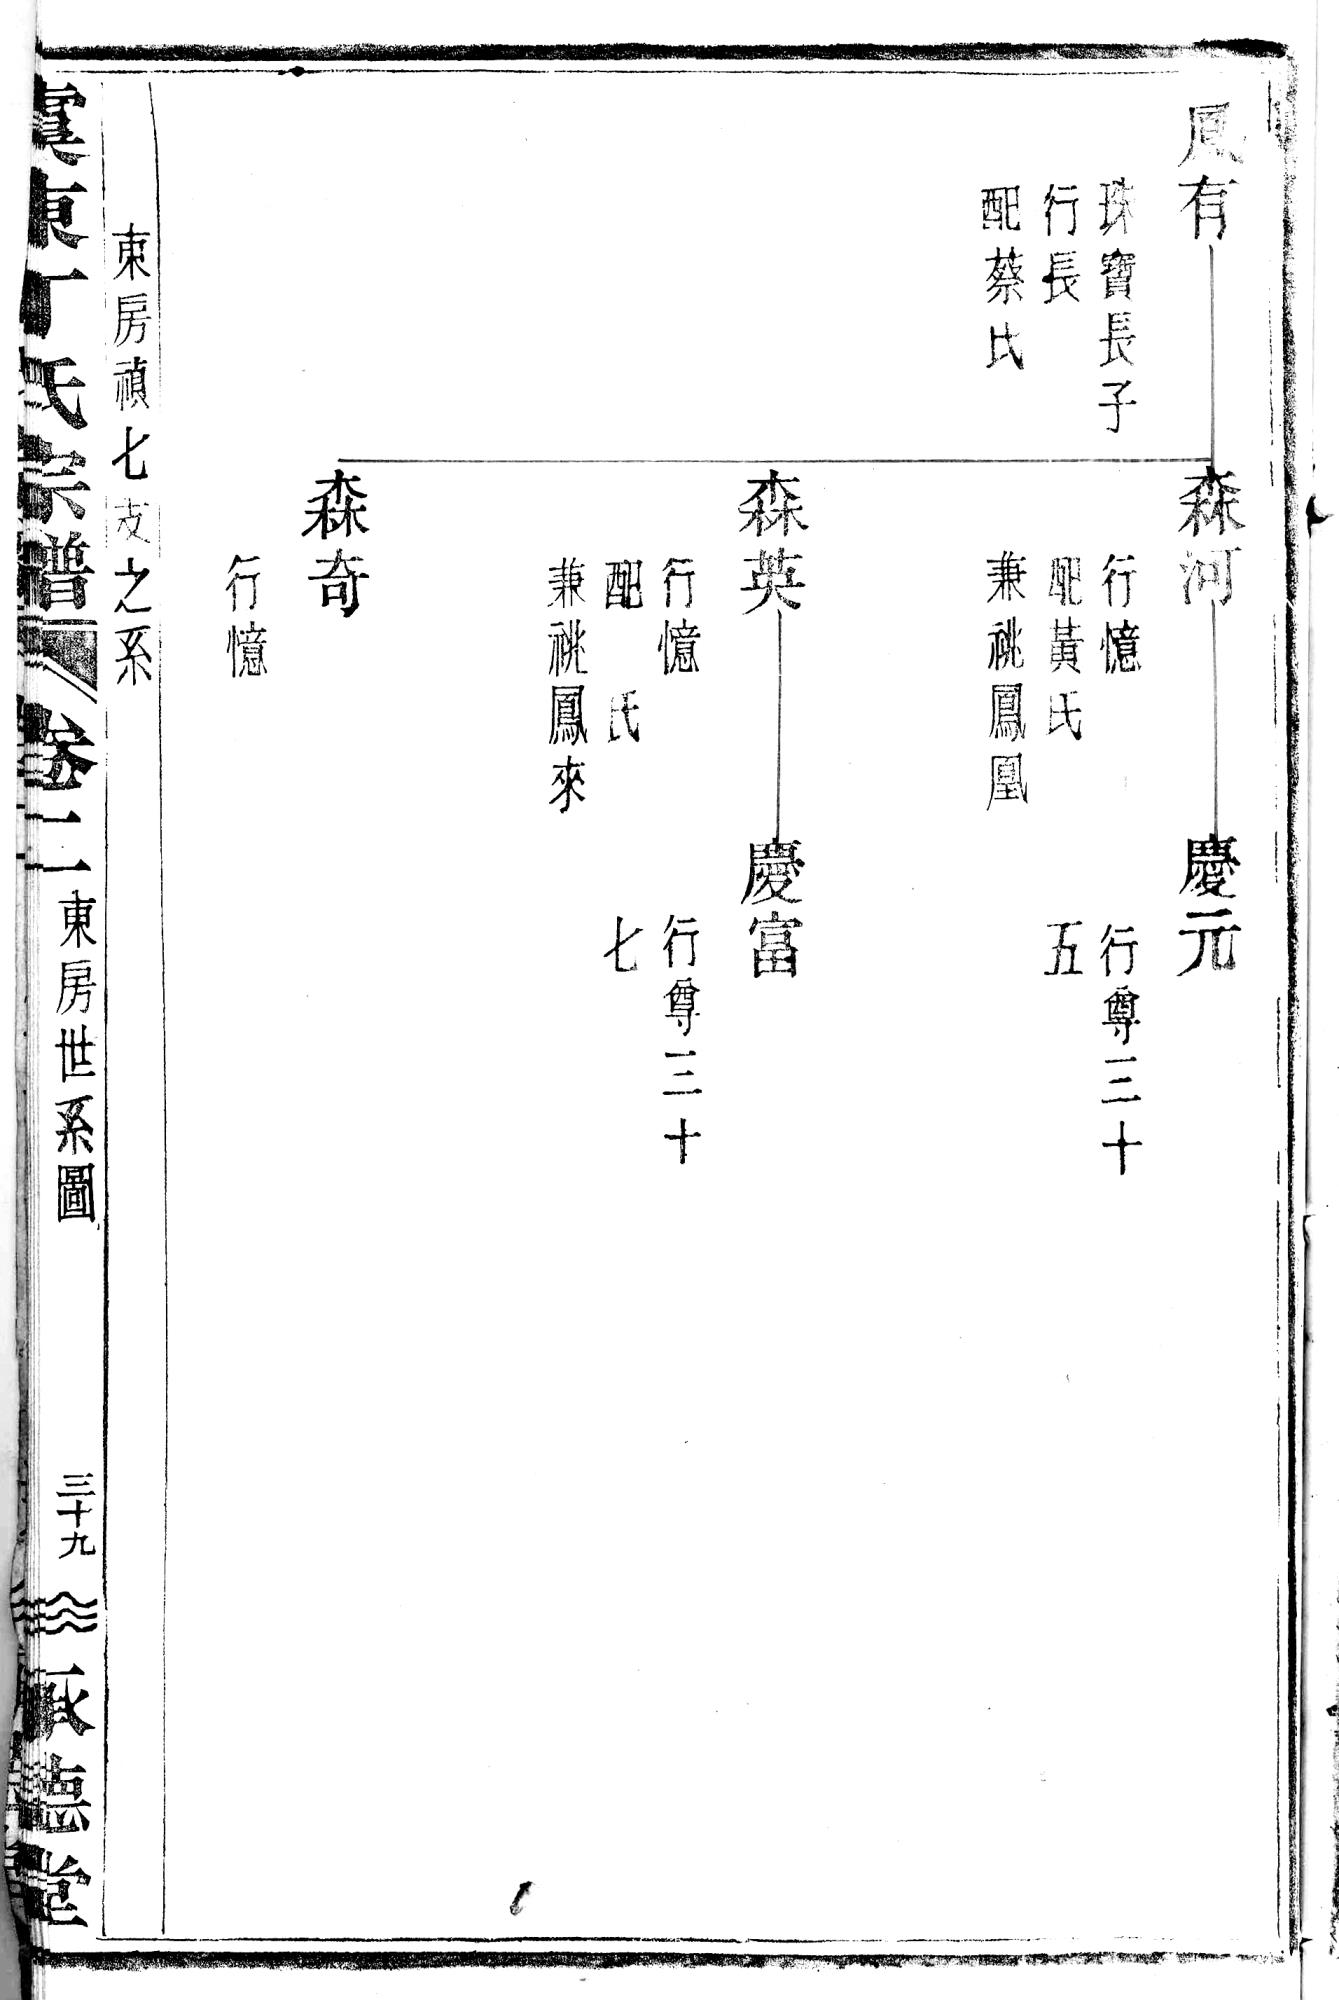 鳳有
珠寶長子
行長
配蔡氏
森河
行憶
配黃氏
兼祧鳳凰
慶元
行尊三十
五
森英
行憶
配　氏
兼祧鳳來
慶富
行尊三十
七
森奇
行憶
東房禎七支之系
虞東丁氏宗譜
卷二
東房世系圖
三十九
承德堂